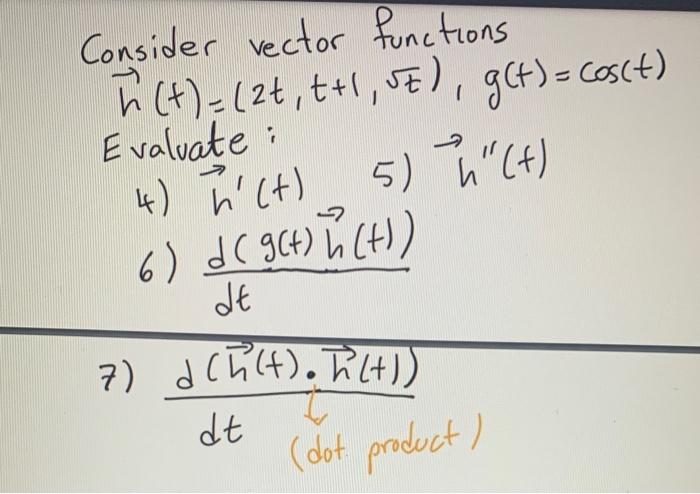 Consider vector functions
h⃗(t)=(2t, t+1, √t), g(t)=cos(t)
Evaluate:
4) h⃗'(t) 5) h⃗"(t)
6) d(g(t)h⃗(t))
dt
7) d(h⃗(t).h⃗(t))
dt
(dot product)